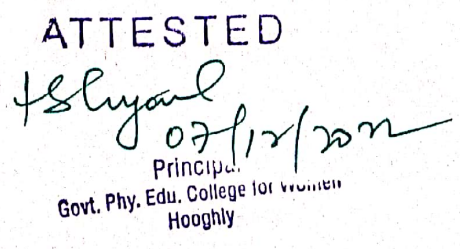 ATTESTED
07/12/2022
Principal
Govt. Phy. Edu. College for Women
Hooghly